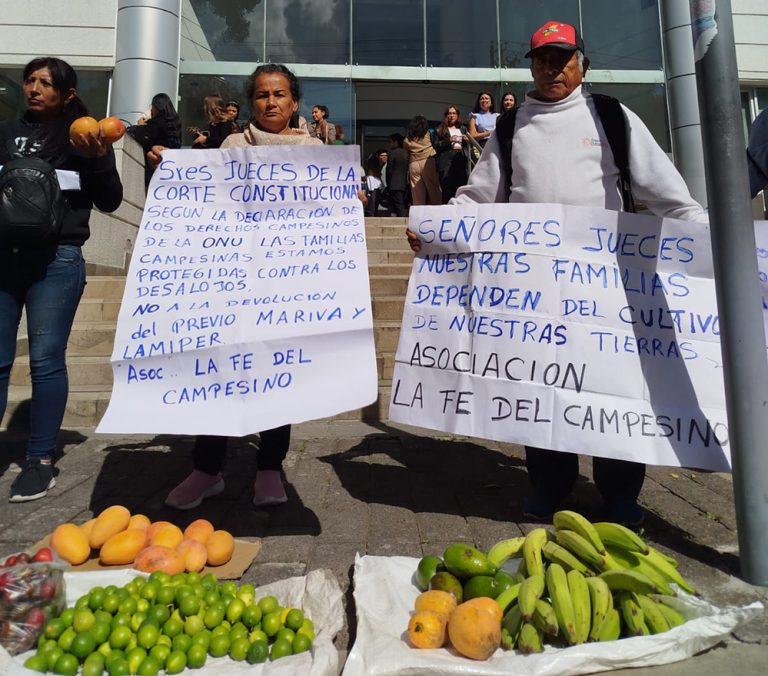 Sres JUECES DE LA
CORTE CONSTITUCIONAL
SEGÚN LA DECLARACIÓN DE
LOS DERECHOS CAMPESINOS
DE LA ONU LAS FAMILIAS
CAMPESINAS ESTAMOS
PROTEGIDAS CONTRA LOS
DESALOJOS.
NO A LA DEVOLUCION
del PREVIO MARIVA Y
LAMIPER.
Asoc.. LA FE DEL
CAMPESINO
SEÑORES JUECES
NUESTRAS FAMILIAS
DEPENDEN DEL CULTIVO
DE NUESTRAS TIERRAS
ASOCIACION
LA FE DEL CAMPESINO